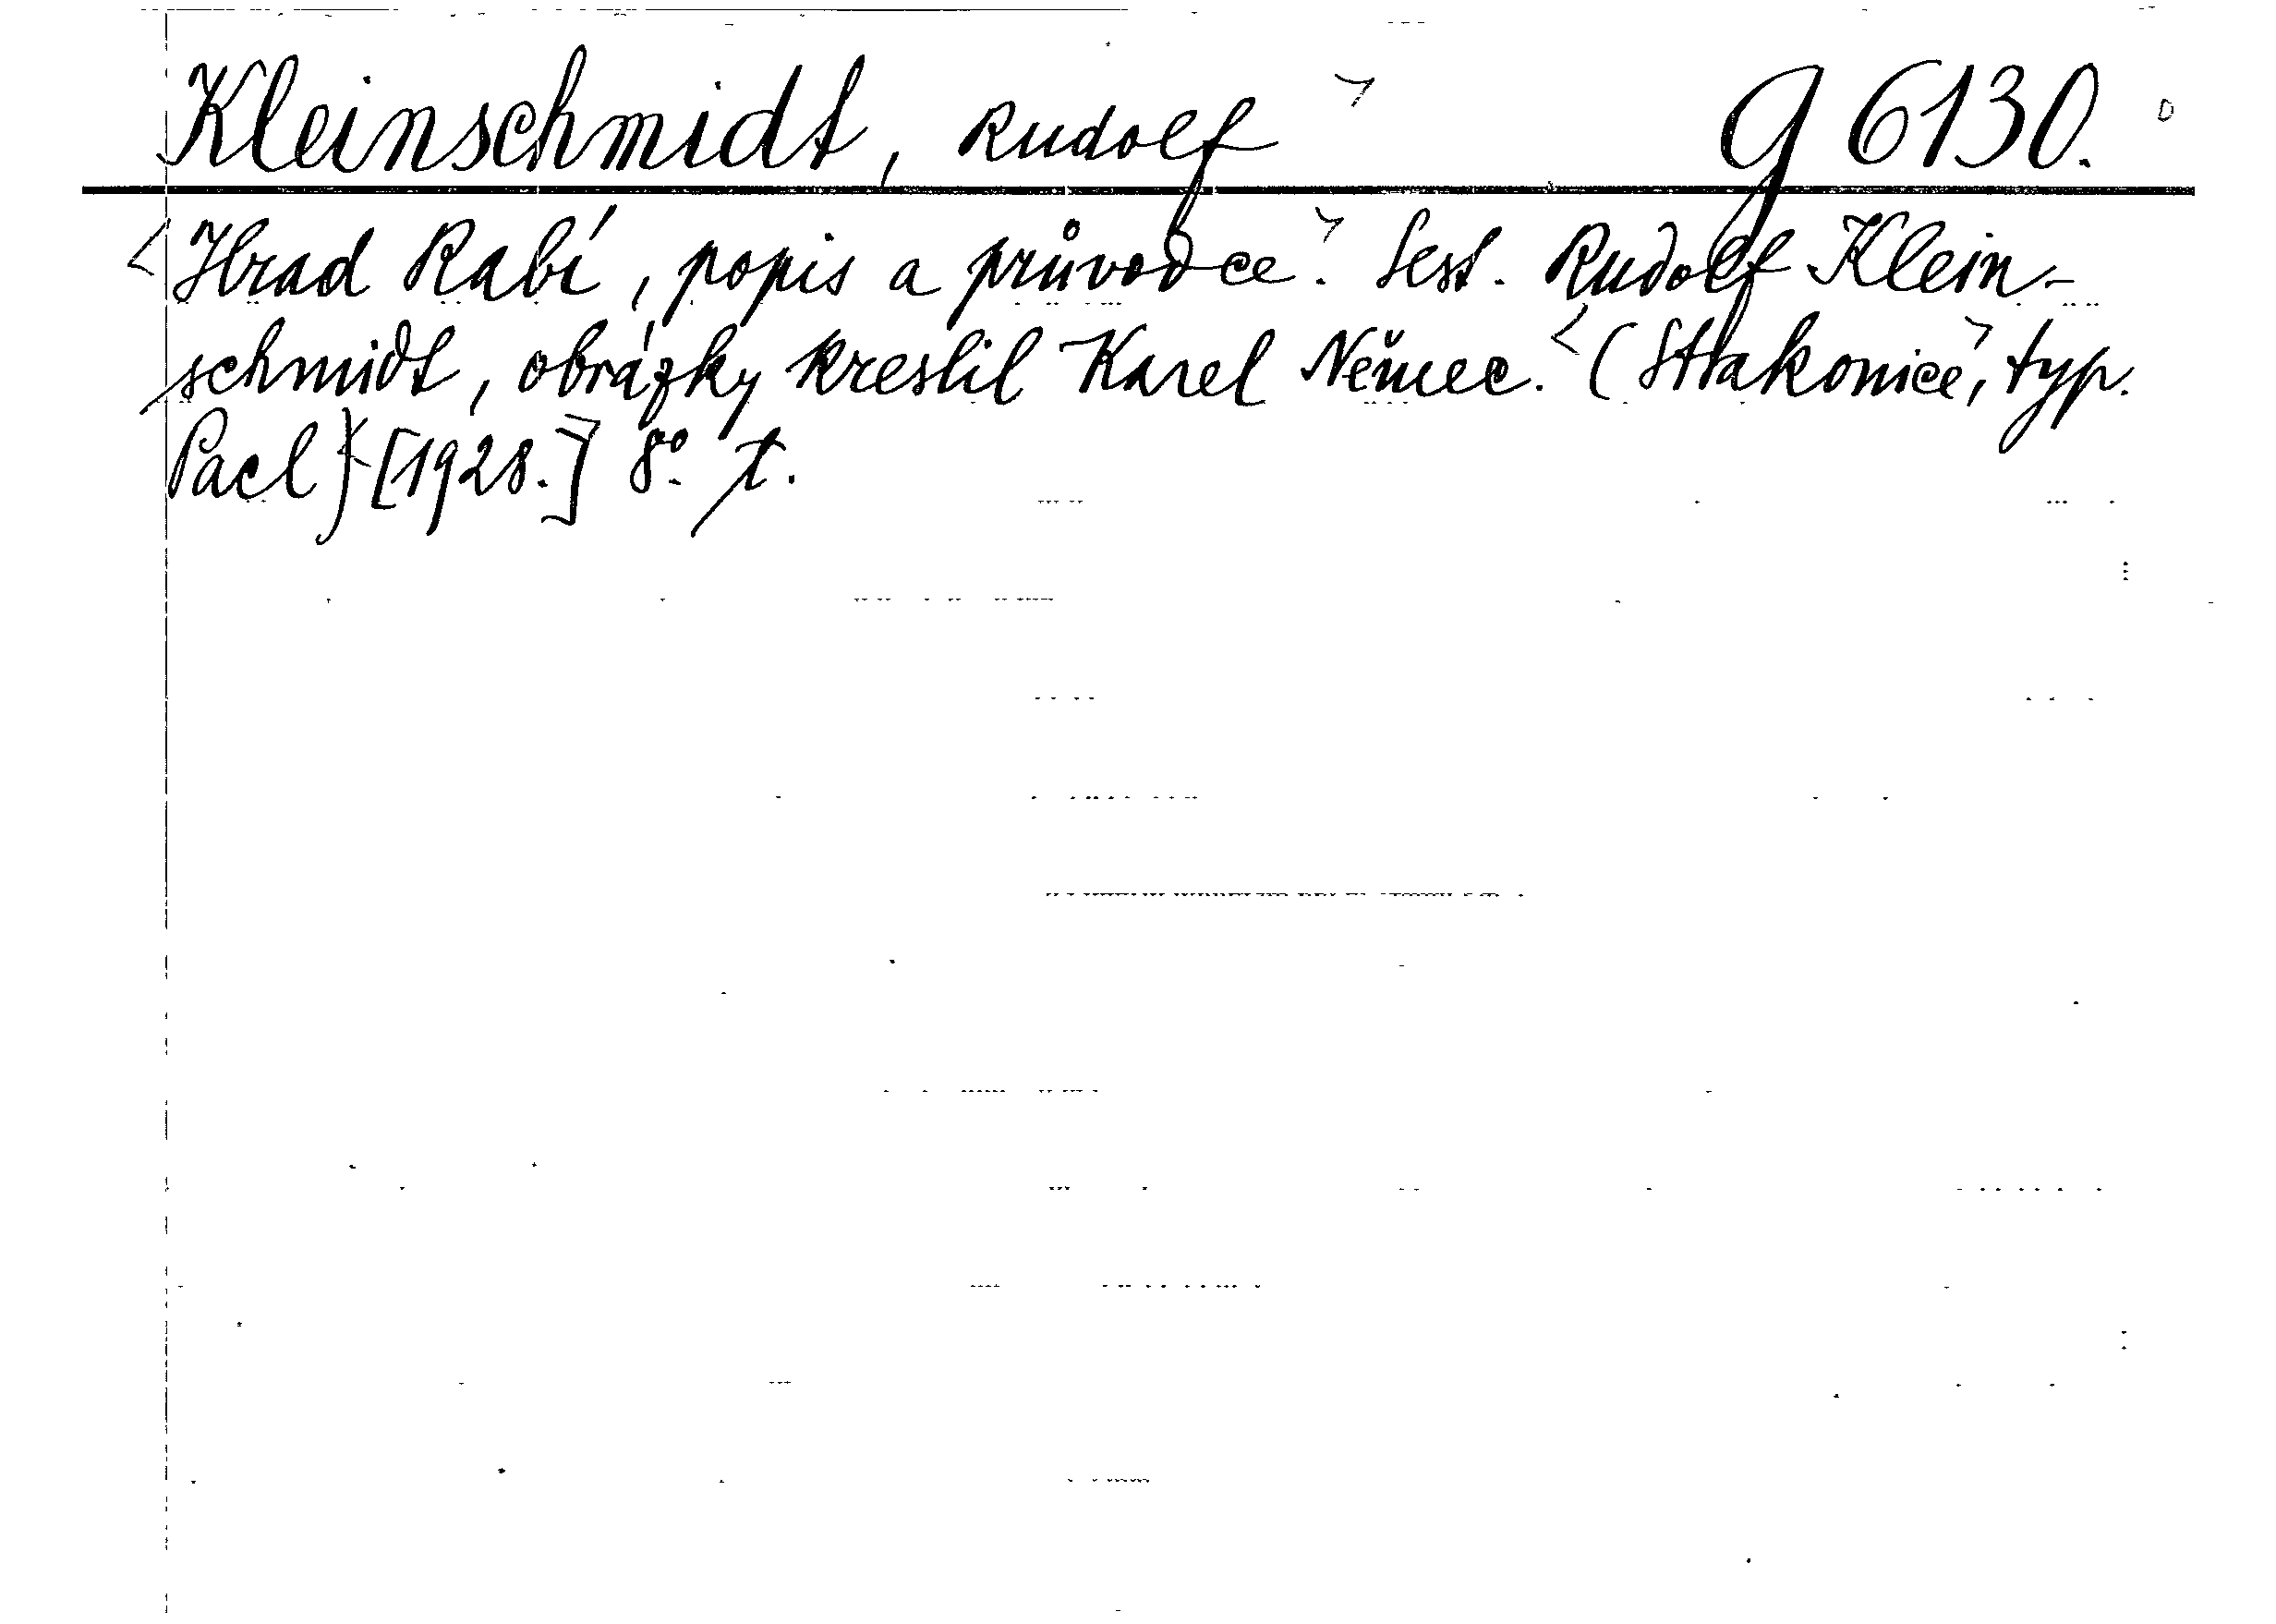 Kleinschmidt, Rudolf g 6130.
Hrad Rabí, popis a průvodce. Sest. Rudolf Klein-
schmidt, obrázky kreslil Karel Němec. (Strakonice, typ.
Pacl) [1928.] 8°. t.